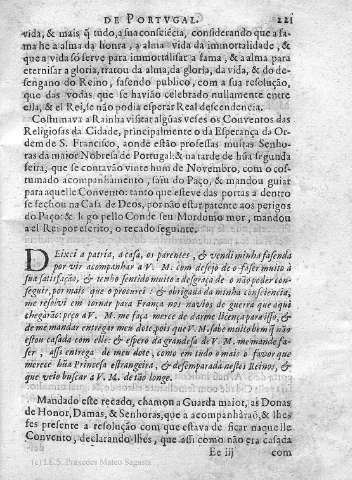 DE PORTVGAL. 221
vida, & mais q̃ tudo, a sua consciẽcia, considerando que a fa-
ma he a alma da honra, a alma vida da immortalidade, &
que a vida só serve para immortalisar a fama, & a alma para
eternisar a gloria, tratou da alma, da gloria, da vida, & do de-
sengano do Reino, fasendo publico, com a sua resolução,
que das vodas que se havião celebrado nullamente entre
ella, & el Rei, se não podia esperar Real descendencia.
Costumava a Rainha visitar algũas veses os Conventos das
Religiosas da Cidade, principalmente o da Esperança da Or-
dem de S. Francisco, aonde estão professas muitas Senho-
ras da maior Nobresa de Portugal: & na tarde de hũa segunda
feira, que se contavão vinte hum de Novembro, com o cos-
tumado acompanhamento, saiu do Paço, & mandou guiar
para aquelle Convento: tanto que esteve das portas a dentro
se fechou na Casa de Deos, por não estar patente aos perigos
do Paço: & lógo pello Conde seu Mordomo mor, mandou
a el Rei por escrito, o recado seguinte.
DEixei a patria, a casa, os parentes, & vendi minha fasenda
por vir acompanhar a V. M. com desejo de o faser muito à
sua satisfação, & tenho sentido muito a desgraça de o não poder con-
seguir, por mais que o procurei: & obrigada da minha consciencia,
me resolvi em tornar para França nos navios de guerra que aqui
chegarão: peço a V. M. me faça merce de dar me licença para isso, &
de me mandar entregar meu dote, pois que V. M. sabe muito bem q̃ não
estou casada com elle: & espero da grandesa de V. M. me mande fa-
ser, assi entrega de meu dote, como em tudo o mais o favor que
merece hũa Princesa estrangeira, & desemparada nestes Reinos, &
que veio buscar a V. M. de tão longe.
Mandado este recado, chamou a Guarda maior, as Donas
de Honor, Damas, & Senhoras, que a acompanhàrão, & lhes
fes presente a resolução com que estava de ficar naquelle
Convento, declarando-lhes, que assi como não era casada
Ee iij com
(c) I.E.S. Práxedes Mateo Sagasta